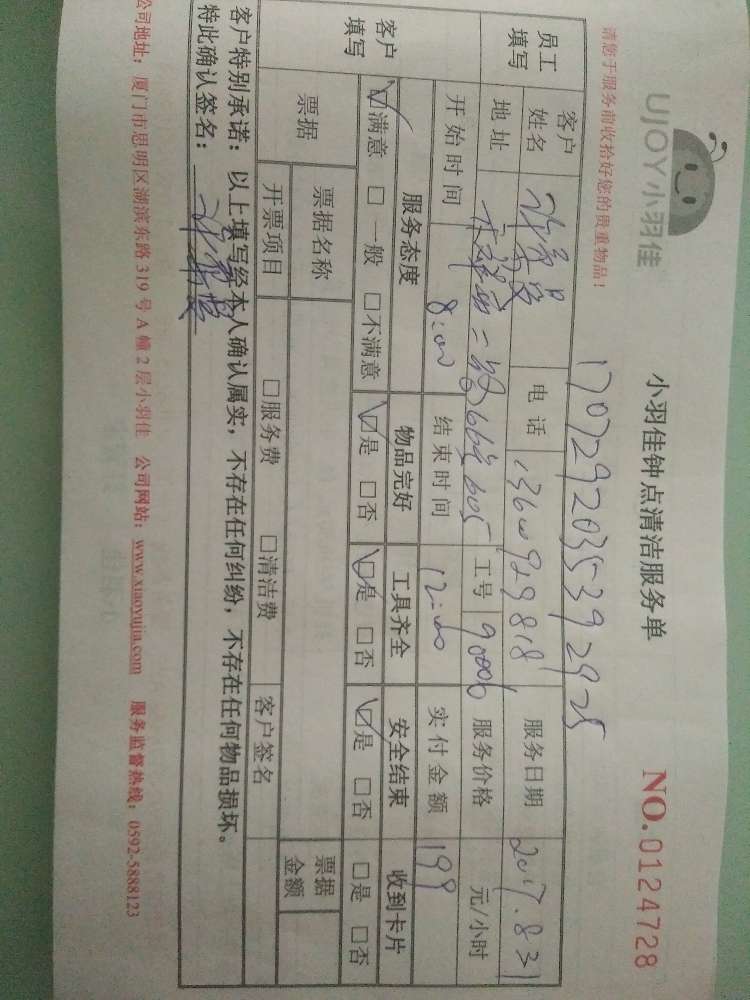 UJOY小羽佳
小羽佳钟点清洁服务单
NO.0124728
请您于服务前收拾好您的贵重物品！
1707292035392925
员工填写 客户姓名 电话 13600929818 服务日期 2017.8.31
地址 工号 90006 服务价格 元/小时
客户填写 开始时间 8:00 结束时间 12:00 实付金额 199
服务态度 物品完好 工具齐全 安全结束 收到卡片
☑满意 □一般 □不满意 ☑是 □否 ☑是 □否 ☑是 □否 □是 □否
票据 票据名称 票据金额
开票项目 □服务费 □清洁费 客户签名
客户特别承诺：以上填写经本人确认属实，不存在任何纠纷，不存在任何物品损坏。
特此确认签名：
公司地址：厦门市思明区湖滨东路319号A幢2层小羽佳 公司网站：www.xiaoyujia.com 服务监督热线：0592-5888123